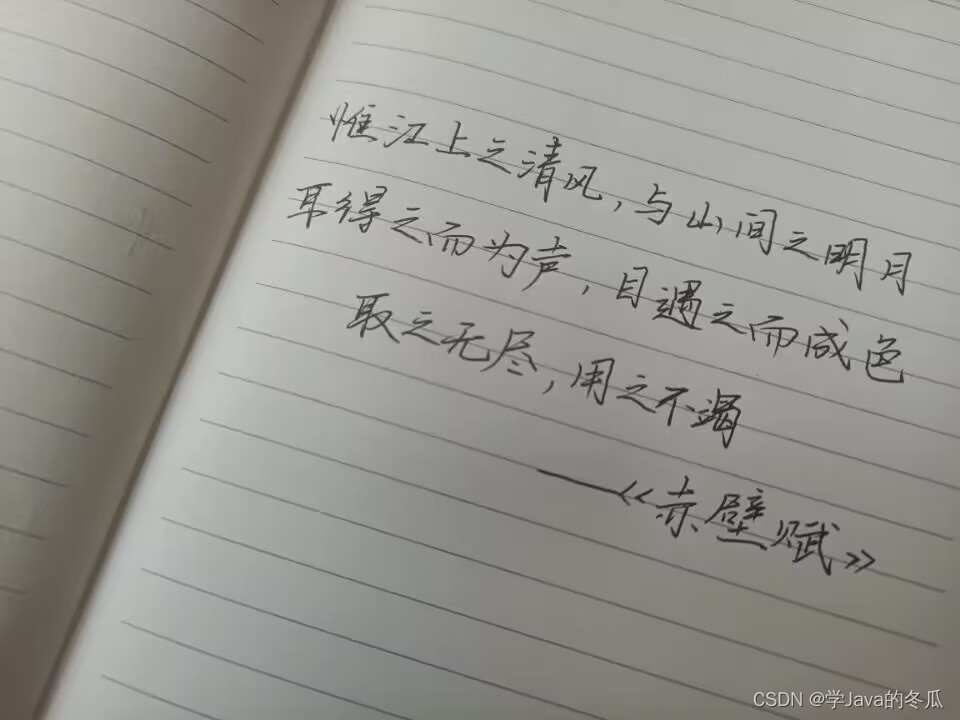 惟江上之清风,与山间之明月
耳得之而为声,目遇之而成色
取之无尽,用之不竭
——《赤壁赋》
CSDN @学Java的冬瓜